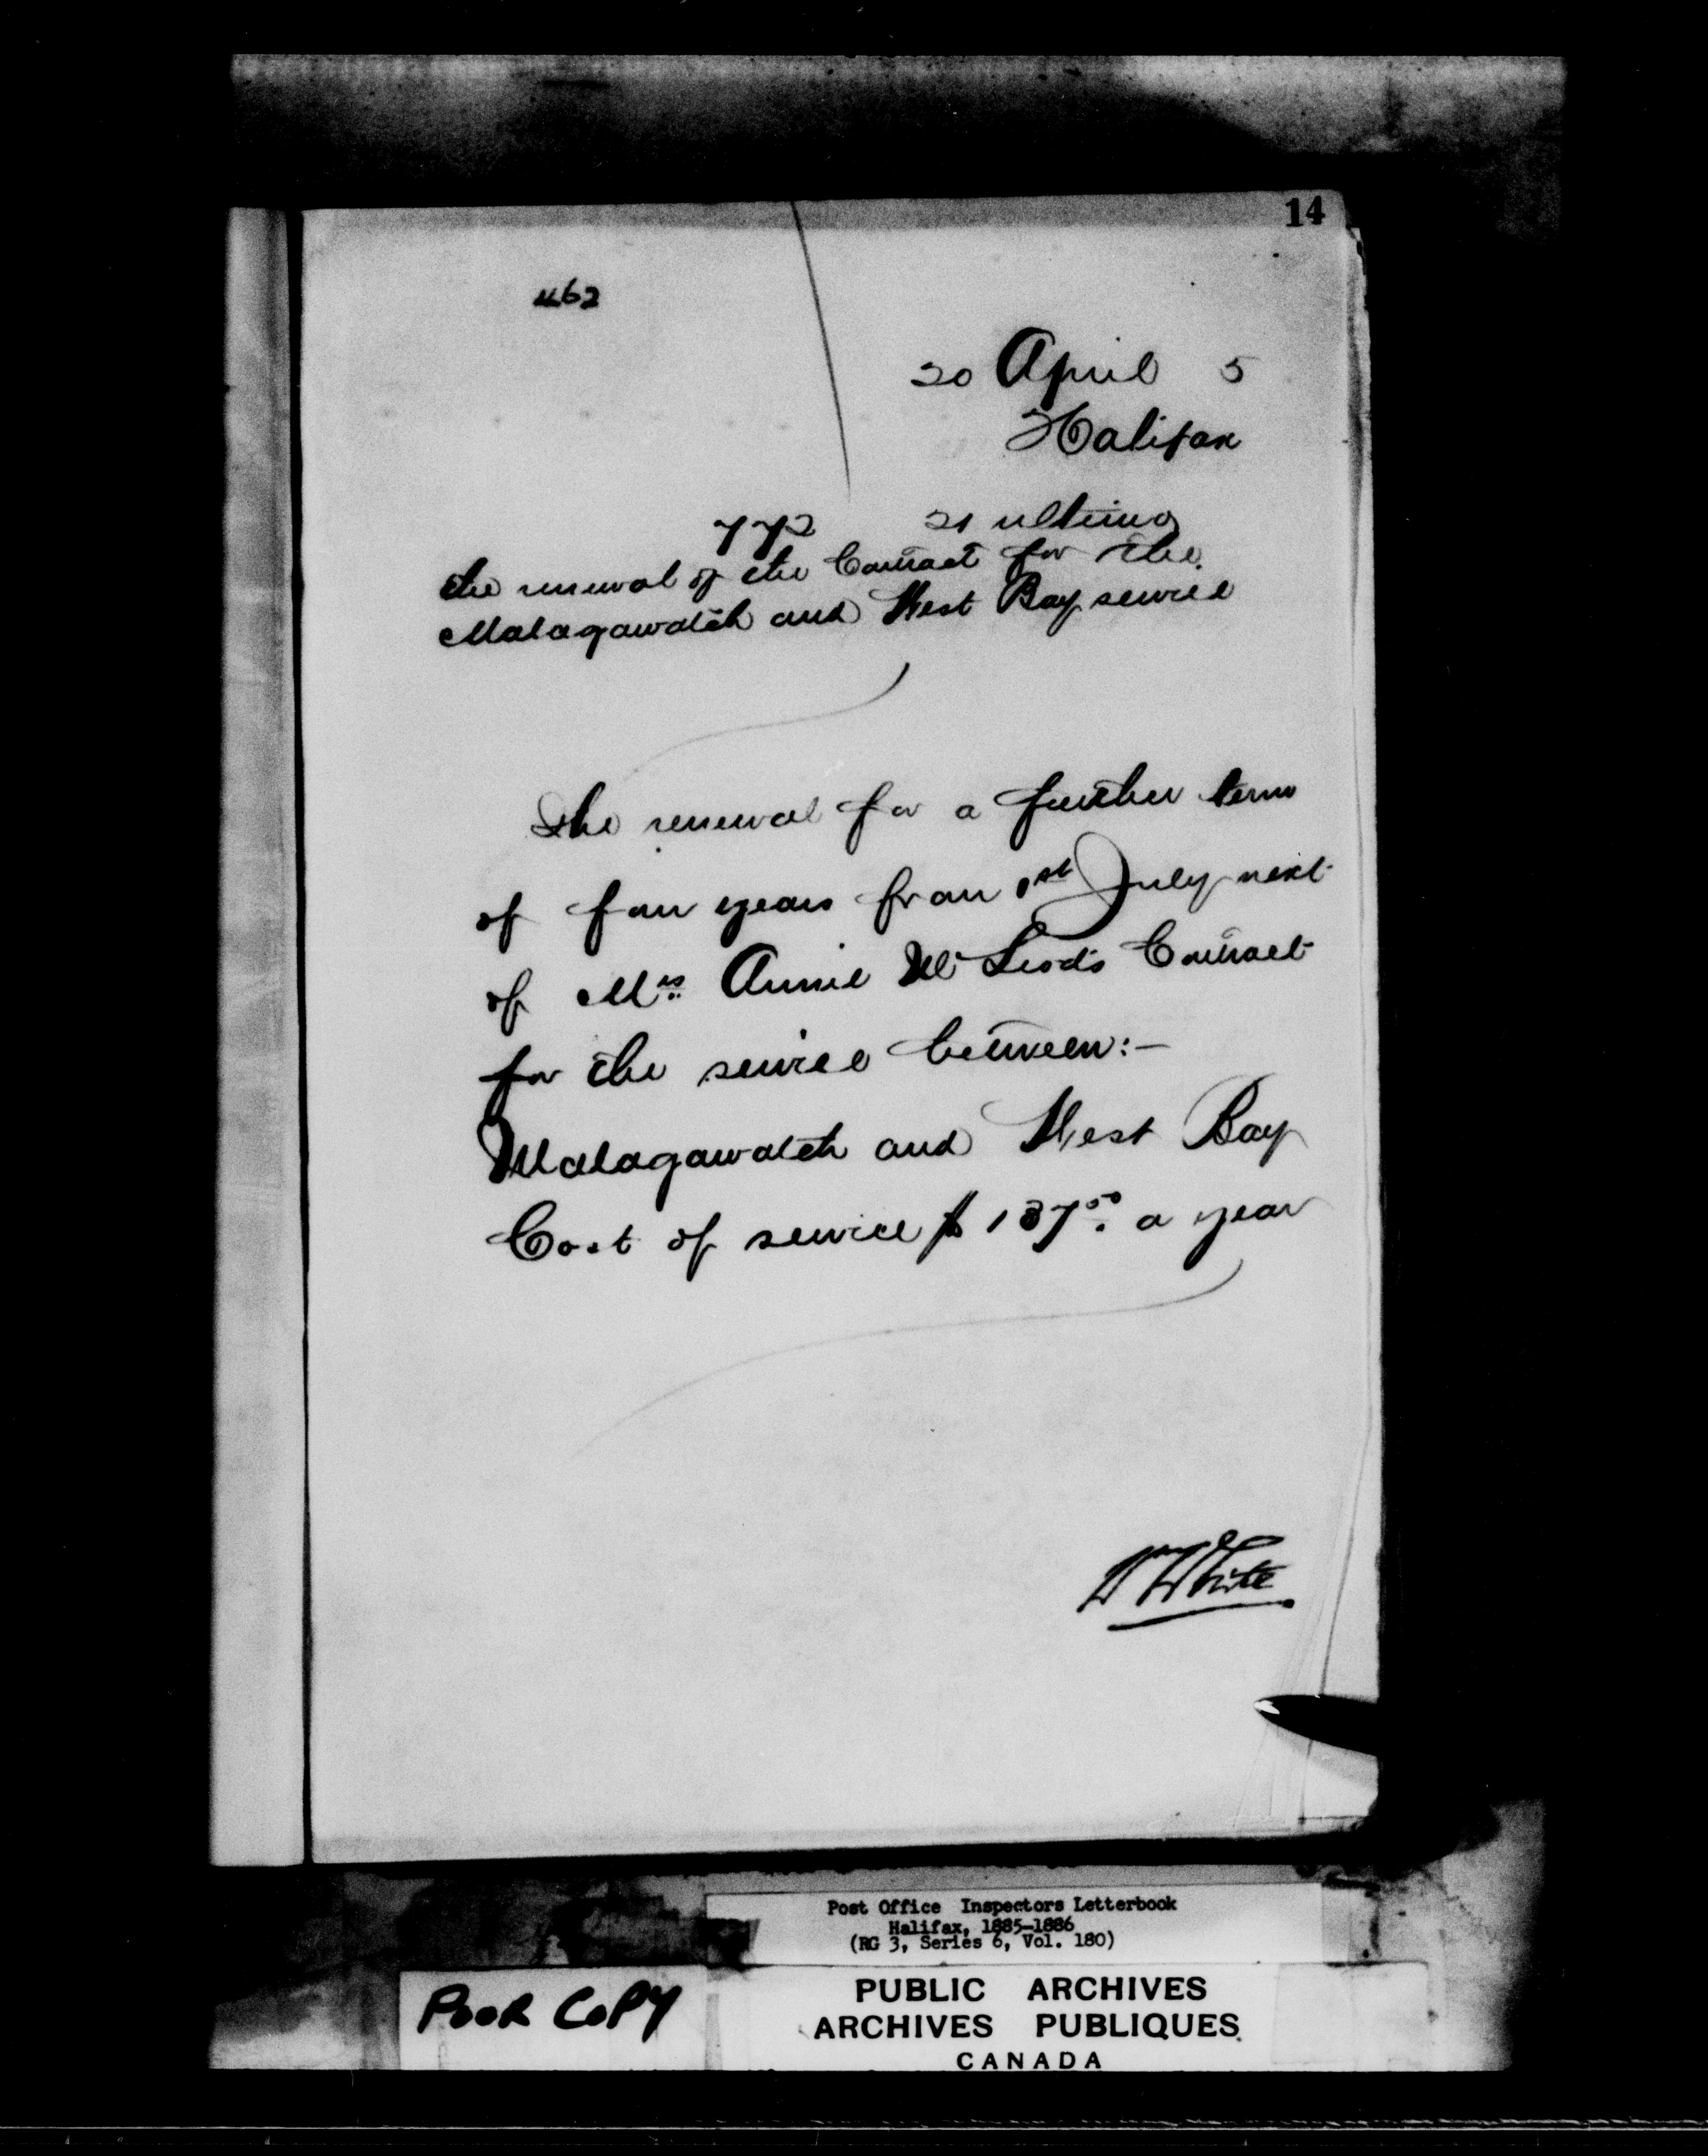 14
462
20 April 5
Halifax
772 21 ultimo
the renewal of the Contract for the
Malagawatch and West Bay service
The renewal for a further term
of four years from 1st July next
of Mrs Annie McLeod's Contract
for the service between:-
Malagawatch and West Bay
Cost of service $137.50 a year
W White
Post Office Inspectors Letterbook
Halifax, 1885-1886
(RG 3, Series 6, Vol. 180)
POOR COPY
PUBLIC ARCHIVES
ARCHIVES PUBLIQUES
CANADA